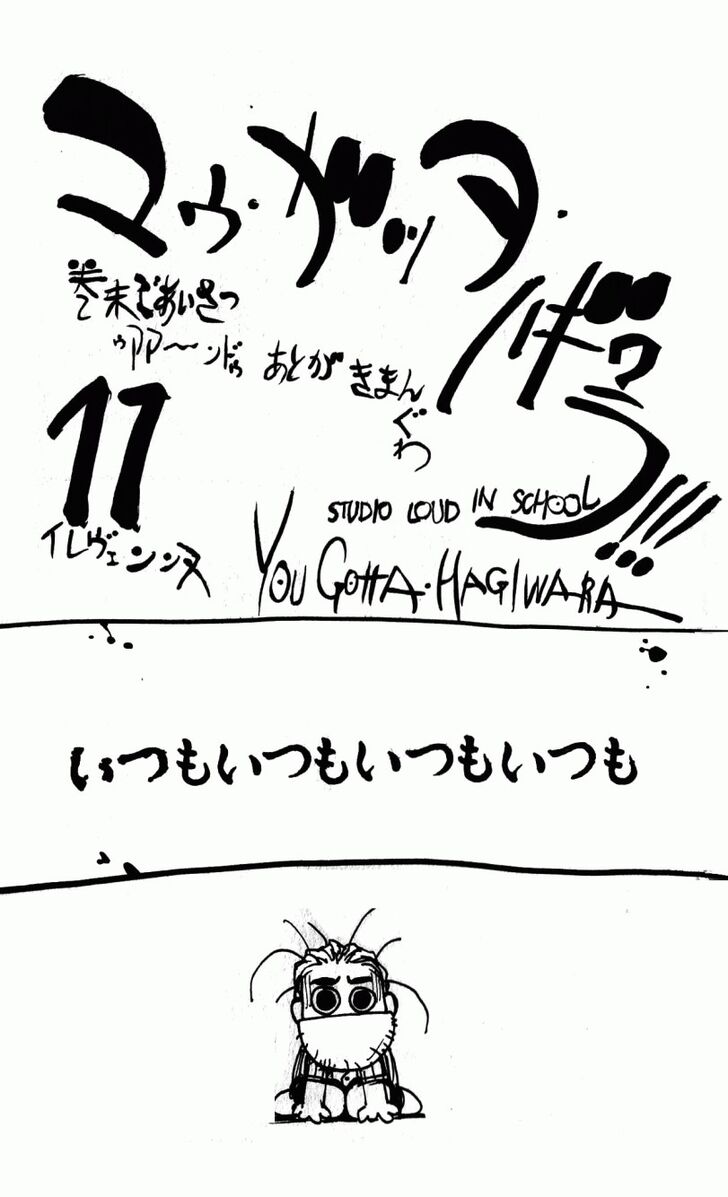 ユゥ・ガッタ・
ハギワラ!!!
巻末であいさつ
ゥアア〜ンドゥ あとがきまんぐわ
11
イレヴェンンヌ
STUDIO LOUD IN SCHOOL
YOU GOTTA・HAGIWARA
いつもいつもいつもいつも